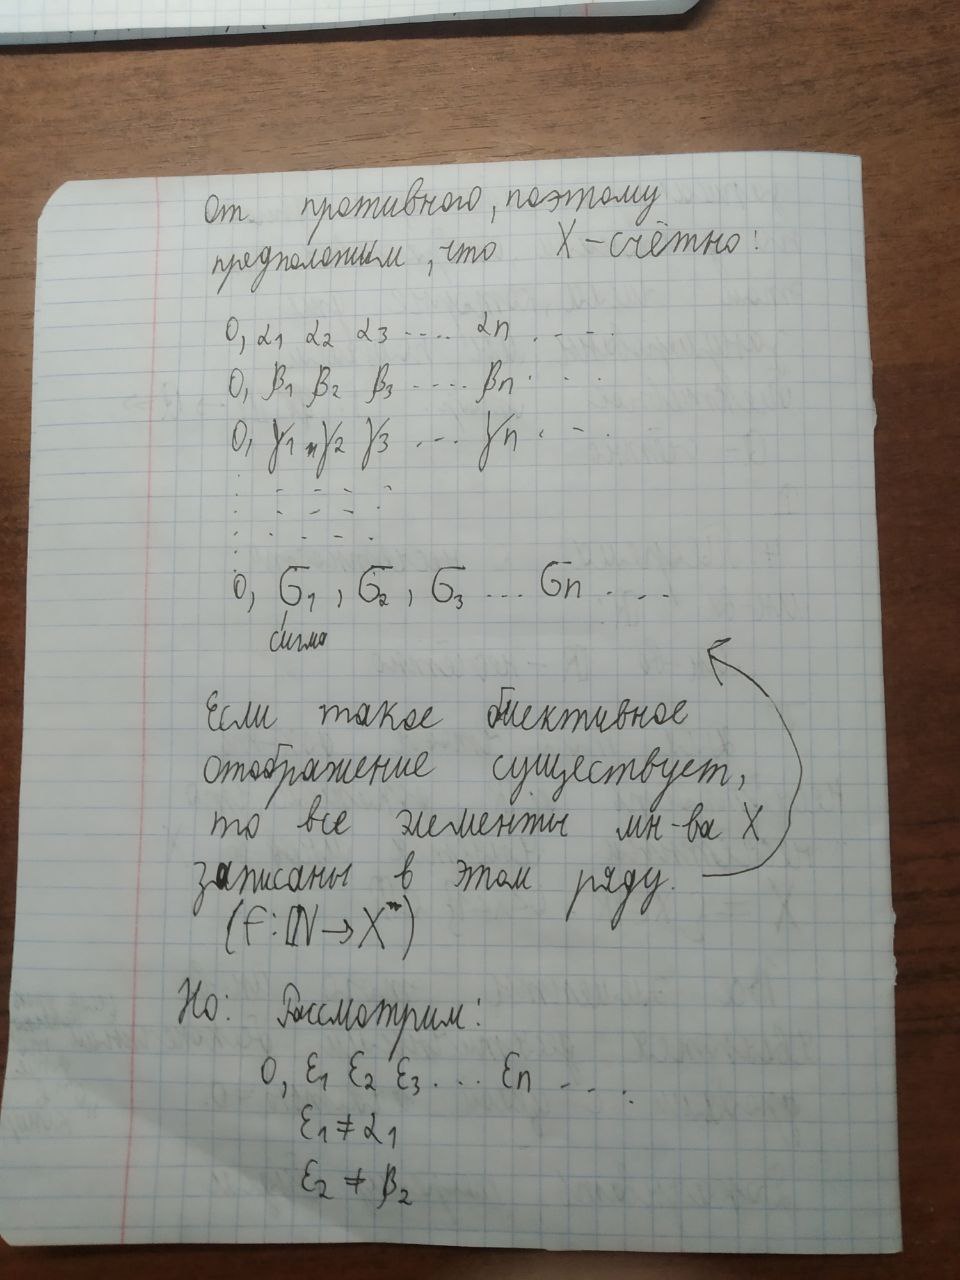 От противного, поэтому
предположим, что X – счётно:
0, α1 α2 α3 .... αn . . - .
0, β1 β2 β3 .... βn . . .
0, γ1 γ2 γ3 ... γn . - .
0, σ1 , σ2 , σ3 ... σn . . .
сигма
Если такое биективное
отображение существует,
то все элементы мн-ва X
записаны в этом ряду.
(f: ℕ → X)
Но: Рассмотрим:
0, ε1 ε2 ε3 ... εn . . . .
ε1 ≠ α1
ε2 ≠ β2